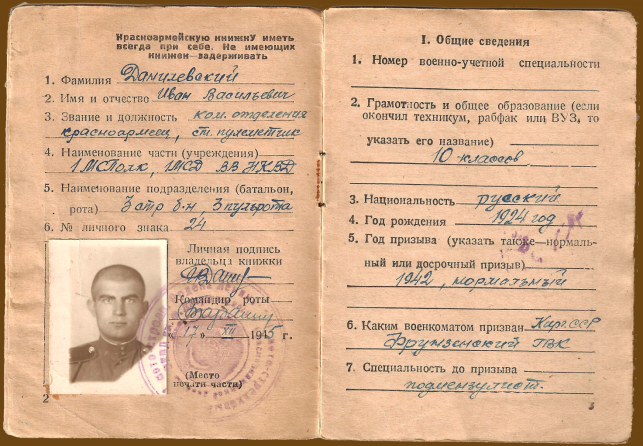 Красноармейскую книжку иметь
всегда при себе. Не имеющих
книжек—задерживать
1. Фамилия Данилевский
2. Имя и отчество Иван Васильевич
3. Звание и должность ком. отделения
красноармеец, ст. пулеметчик
4. Наименование части (учреждения)
1 МСПолк, 1МСД ВВ НКВД
5. Наименование подразделения (батальон,
рота) 3 стр б-н, 3 пульрота
6. № личного знака 24
Личная подпись
владельца книжки
Командир роты
„17" XII 1945 г.
(Место
печати части)
2
I. Общие сведения
1. Номер военно-учетной специальности
2. Грамотность и общее образование (если
окончил техникум, рабфак или ВУЗ, то
указать его название)
10 классов
3. Национальность русский
4. Год рождения 1924 год
5. Год призыва (указать также—нормаль-
ный или досрочный призыв)
1942, нормальный
6. Каким военкоматом призван Кир.ССР
Фрунзенский ГВК
7. Специальность до призыва
3